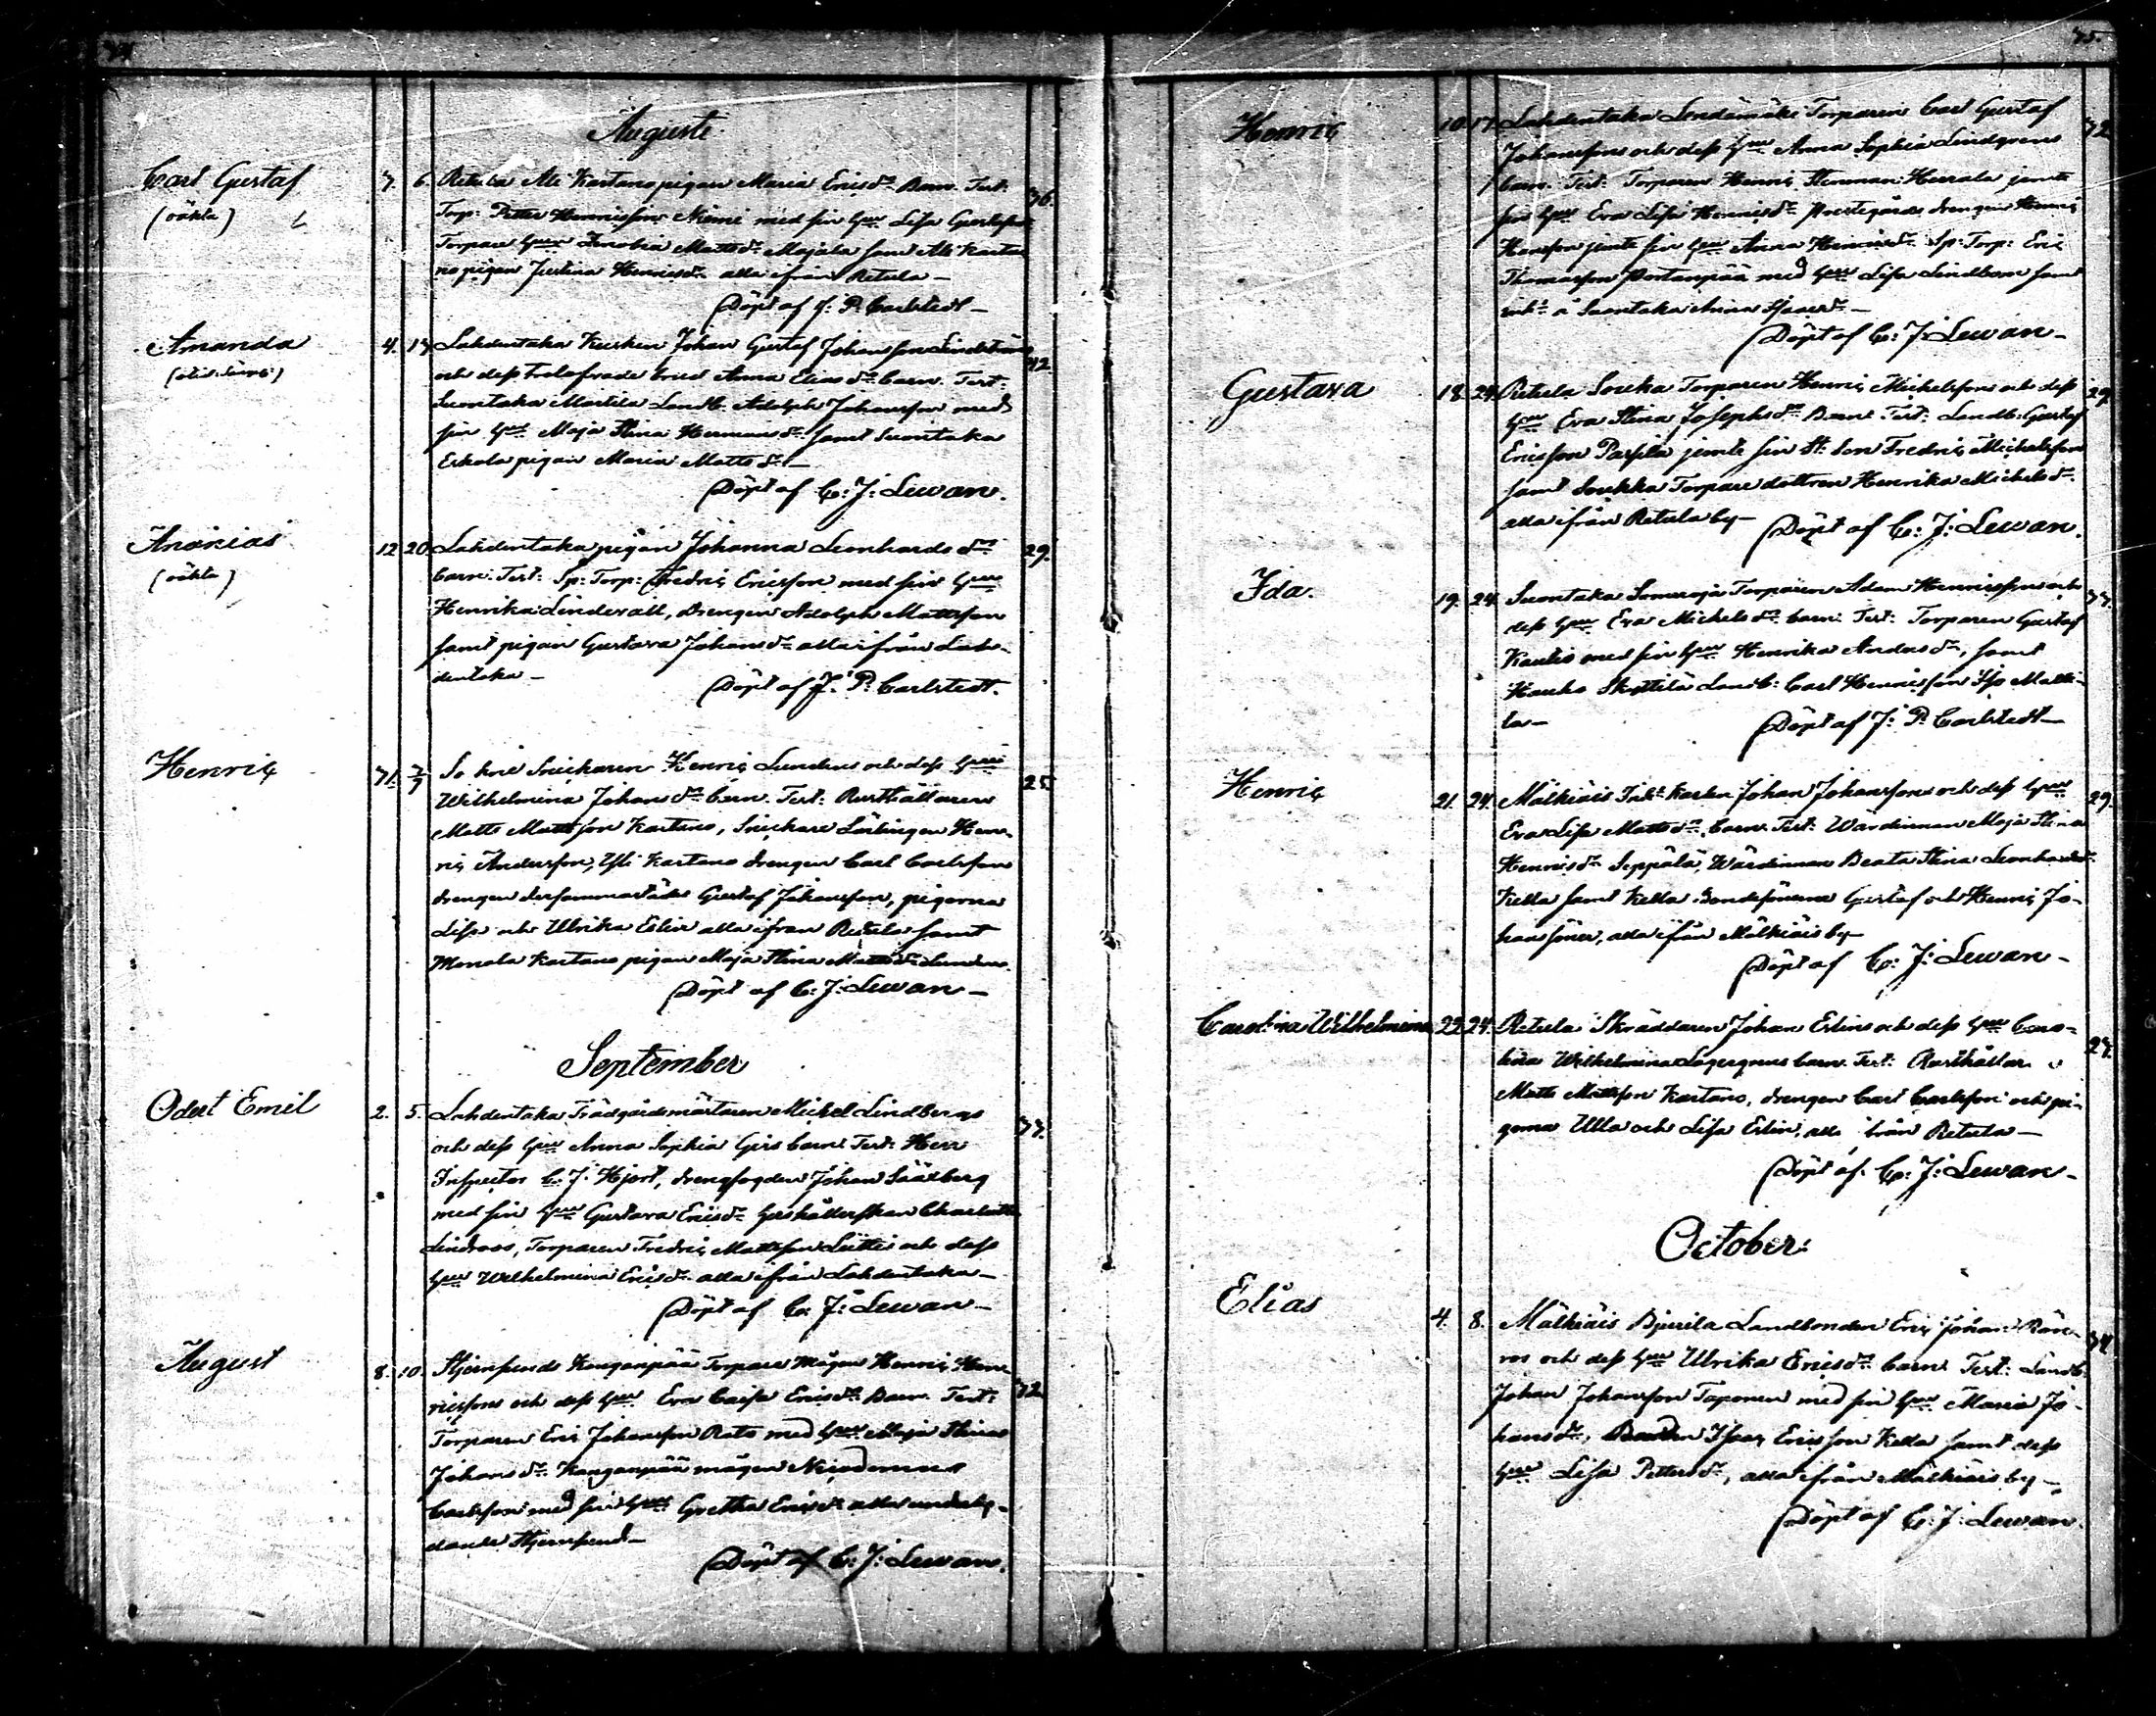 75.
Augusti
Carl Gustaf 7. 6. Retula Ali Kartano pigan Maria Ericsdr Barn. Test:
(oäkta) Torp: Petter Henricsson Niemi med sin hu Lisa Gustafsdr 36.
Torpare hu Zenobia Mattsdr Majala samt Ali Karta
no pigan Justina Henricsdr alla ifrån Retula —
Döpt af J: P: Carlstedt —
Amanda 4. 13 Lahdentaka Kusken Johan Gustaf Johansson Lindström
och dess trolofvade brud Anna Eliasdr barn. Test: 42.
Suontaka Martila Landb: Adolph Johansson med
sin hu Maja Stina Hermansdr samt Suontaka
Erkola pigan Maria Mattsdr —
Döpt af C: J: Lewan.
Ananias 12 20 Lahdentaka pigan Johanna Leonhardsdr 29.
(oäkta) barn: Test: Sp: Torp: Fredric Ericsson med sin hu
Henrika Linderwall, drengen Adolph Mattsson
samt pigan Gustava Johansdr alla ifrån Lah-
dentaka —
Döpt af J: P: Carlstedt.
Henric 31. 7/7 Snickaren Henric Lundens och dess hu
Wilhelmina Johansdr barn. Test: Rusthållaren 25.
Matts Mattsson Kartano, Snickare Lärlingen Hen-
ric Andersson, Yli Kartano drengen Carl Carlsson
drengen dersammastädes Gustaf Johansson, pigorna
Lisa och Ulrika Erlin alla ifrån Retula samt
Monala Kartano pigan Maja Stina Mattsdr Lunden.
Döpt af C: J: Lewan —
September
Odert Emil 2. 5. Lahdentaka Trädgårdsmästaren Mickel Lindbergs
och dess hu Anna Sophia Girs barn. Test: Herr 33.
Inspector C: J: Hjort, drengfogden Johan Säätberg
med sin hu Gustava Ericsdr hushållerskan Charlotta
Lindroos, Torparen Fredric Mattsson Leittis och dess
hu Wilhelmina Ericsdr alla ifrån Lahdentaka —
Döpt af C: J: Lewan —
August 8. 10. Stjernsunds Kanganpää Torpare mågen Henric Hen-
ricssons och dess hu Eva Caisa Ericsdr Barn. Test: 32
Torparen Eric Johansson Rato med hu Maja Stina
Johansdr Kanganpää mågen Nicodemus
Carlsson med sin hu Gretha Ericsdr alla underly-
dande Stjernsund —
Döpt af C: J: Lewan.
Henric 10. 17. Lahdentaka Lendämäki Torparen Carl Gustaf 32
Johanssons och dess hu Anna Sophia Lindgrens
barn. Test: Torparen Henric Stenman Heerala jemte
sin hu Eva Lisa Henricsdr Prestegårds drengen Henric
Hansson jemte sin hu Anna Henricsdr Sp: Torp: Eric
Thomasson Portanpää med hu Lisa Lindbom samt
inh: å Suontaka Anna Isacsdr —
Döpt af C: J: Lewan —
Gustava 18. 24. Retula Soukka Torparen Henric Mickelssons och dess 29.
hu Eva Stina Josephsdr Barn. Test: Landb: Gustaf
Ericsson Passila jemte sin St: Son Fredric Mickelsson
samt Soukka Torpare dottren Henrika Mickelsdr
alla ifrån Retula by —
Döpt af C: J: Lewan.
Ida. 19. 24. Suontaka Someroja Torparen Adam Henricssons och 37.
dess hu Eva Mickelsdr barn. Test: Torparen Gustaf
Kautis med sin hu Henrika Andersdr, samt
Hauho Skyttilä Landb: Carl Henricsson Iso Matti-
la —
Döpt af J: P: Carlstedt —
Henric 21. 24. Mälkiäis Inh: Karlen Johan Johanssons och dess hu 29.
Eva Lisa Mattsdr barn. Test: Wärdinnan Maja Stina
Henricsdr Seppälä, Wärdinnan Beata Stina Leonhardsdr
Kella samt Kella Bondesönerna Gustaf och Henric Jo-
hanssöner, alla ifrån Mälkiäis by —
Döpt af C: J: Lewan —
Carolina Wilhelmina 22. 24. Retula Skräddaren Johan Erlins och dess hu Caro- 27.
lina Wilhelmina Lagergrens barn. Test: Rusthållar
Matts Mattsson Kartano, drengen Carl Carlsson och pi-
gorna Ulla och Lisa Erlin, alla från Retula —
Döpt af C: J: Lewan —
October.
Elias 4. 8. Mälkiäis Bjurila Landbonden Eric Johan Rön- 34.
ros och dess hu Ulrika Ericsdr barn. Test: Landb:
Johan Johansson Taponen med sin hu Maria Jo-
hansdr, Bonden Isaac Ericsson Kella samt dess
hu Lisa Pettersdr, alla ifrån Mälkiäis by —
Döpt af C: J: Lewan.